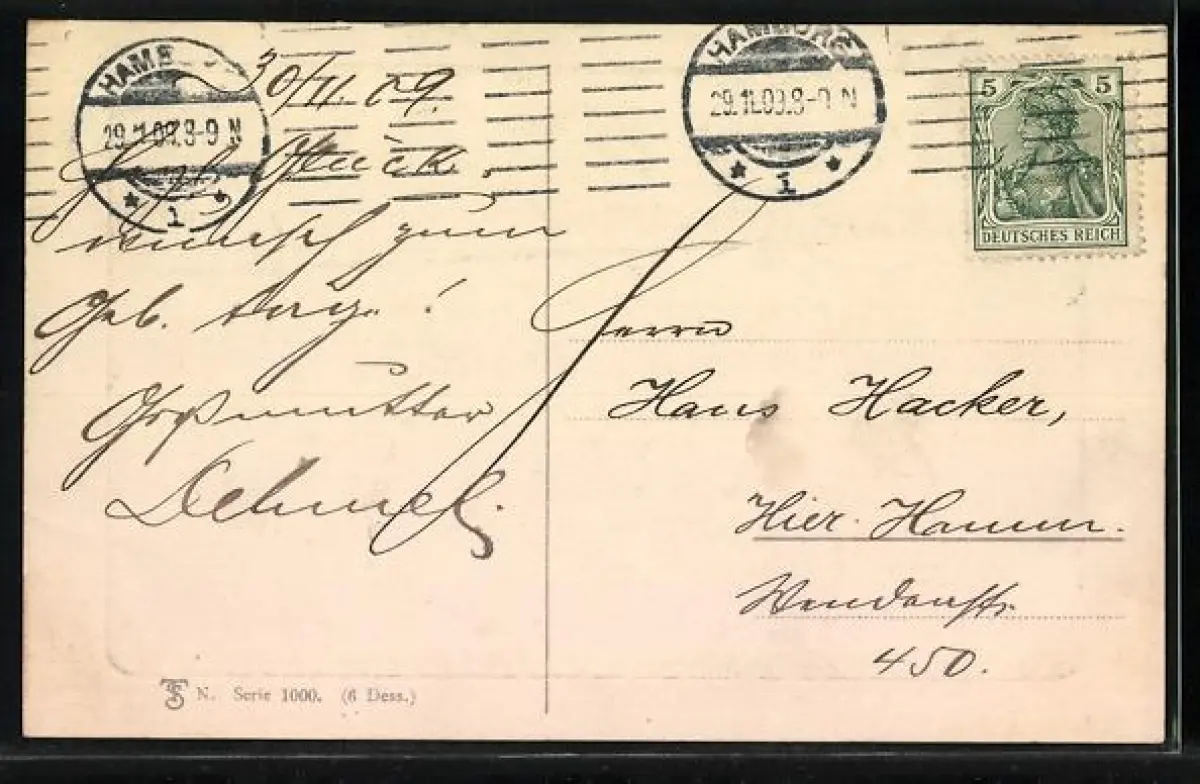 HAMBURG
29.11.09.8-9 N
* 1 *
HAMBURG
29.11.09.8-9 N
* 1 *
5 5
DEUTSCHES REICH
30/11.09.
Glück-
wunsch zum
Geb. tag. !
Großmutter
Dehmel.
Herrn
Hans Hacker,
Hier. Hamm.
Wendenstr.
450.
N. Serie 1000. (6 Dess.)